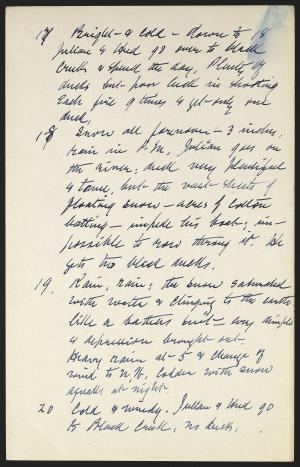 17 Bright - & cold - down to 18
Julian & Hud go over to black
Creek & spend the day. Plenty of
ducks but poor luck in shooting
Each fire 9 times & get only one
duck.
18 Snow all forenoon - 3 inches,
rain in P.M. Julian goes on
the river; ducks very plentiful
& tame, but the vast sheets of
floating snow - acres of cotton
batting - impede his boat; im-
possible to row through it. He
gets two black ducks.
19. Rain, rain; the snow saturated
with water & clinging to the earth
like a bathers suit - every dimple
& depression brought out.
Heavy rain at 5 & change of
wind to N.W. Colder with snow
squalls at night.
20 Cold & windy. Julian & Hud go
to Black Creek, no ducks.